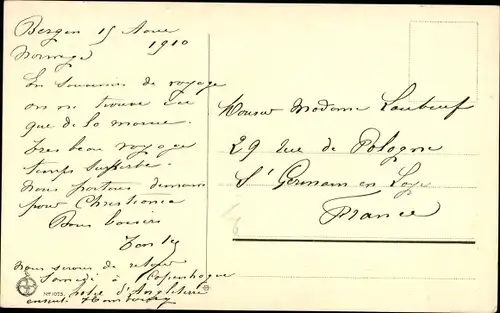 Bergen 15 Aout
1910
Norvège
En souvenir de voyage
on ne trouve ici
que de la morue.
Tres beau voyage
temps superbe.
Nous partons demain
pour Christiania
Bons baisers
Nous serons de retour
Samedi à Copenhague
hotel d'Angleterre
ensuite Hambourg
No 1023.
Monsieur Madame Laubeuf
29 rue de Pologne
St Germain en Laye
France